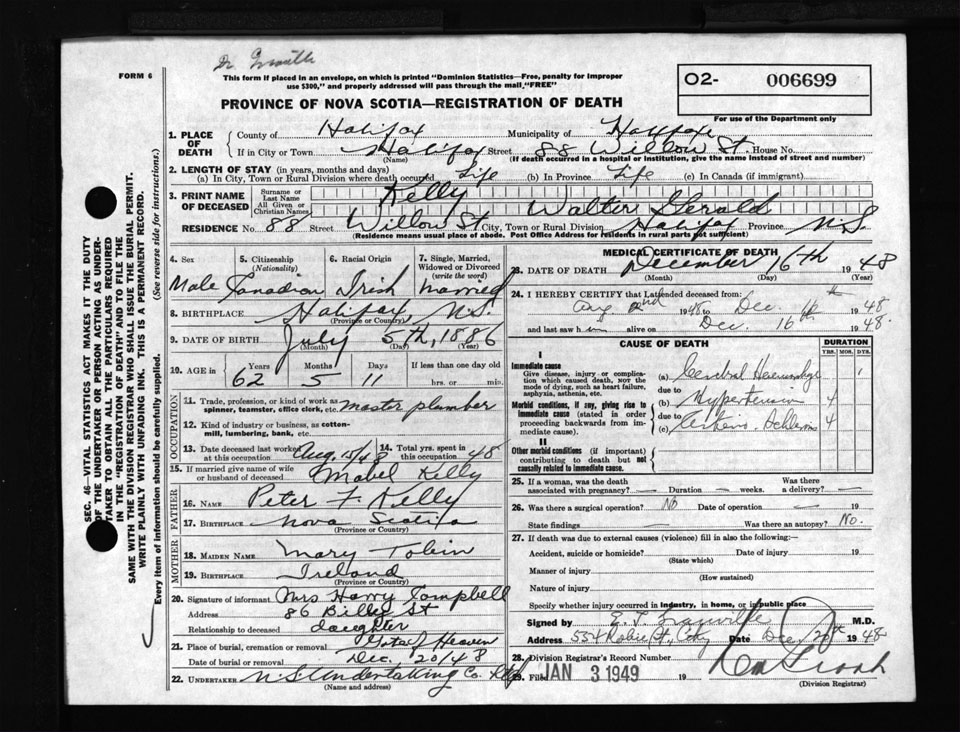 FORM 6
This form if placed in an envelope, on which is printed "Dominion Statistics—Free, penalty for improper
use $300," and properly addressed will pass through the mail "FREE"
O2- 006699
For use of the Department only
PROVINCE OF NOVA SCOTIA—REGISTRATION OF DEATH
SEC. 46—VITAL STATISTICS ACT MAKES IT THE DUTY
OF THE UNDERTAKER OR PERSON ACTING AS UNDER-
TAKER TO OBTAIN ALL THE PARTICULARS REQUIRED
IN THE "REGISTRATION OF DEATH" AND TO FILE THE
SAME WITH THE DIVISION REGISTRAR WHO SHALL ISSUE THE BURIAL PERMIT.
WRITE PLAINLY WITH UNFADING INK. THIS IS A PERMANENT RECORD.
Every item of information should be carefully supplied. (See reverse side for instructions.)
1. PLACE OF DEATH
County of Halifax Municipality of Halifax
If in City or Town Halifax Street 88 Willow St. House No.
(Name) (If death occurred in a hospital or institution, give the name instead of street and number)
2. LENGTH OF STAY (in years, months and days)
(a) In City, Town or Rural Division where death occured Life (b) In Province Life (c) In Canada (if immigrant)
3. PRINT NAME OF DECEASED
Surname or Last Name Kelly
All Given or Christian Names Walter Gerald
RESIDENCE No. 88 Street Willow St. City, Town or Rural Division Halifax Province N.S.
(Residence means usual place of abode. Post Office Address for residents in rural parts not sufficient)
4. Sex Male
5. Citizenship (Nationality) Canadian
6. Racial Origin Irish
7. Single, Married, Widowed or Divorced (write the word) Married
8. BIRTHPLACE Halifax N.S.
(Province or Country)
9. DATE OF BIRTH July 5th, 1886
(Month) (Day) (Year)
10. AGE in Years 62 Months 5 Days 11 If less than one day old
hrs. or min.
OCCUPATION
11. Trade, profession, or kind of work as
spinner, teamster, office clerk, etc. Master plumber
12. Kind of industry or business, as cotton-
mill, lumbering, bank, etc.
13. Date deceased last worked at this occupation Aug. 15/48
14. Total yrs. spent in this occupation 48
15. If married give name of wife
or husband of deceased Mabel Kelly
FATHER
16. NAME Peter F. Kelly
17. BIRTHPLACE Nova Scotia
(Province or Country)
MOTHER
18. MAIDEN NAME Mary Tobin
19. BIRTHPLACE Ireland
(Province or Country)
20. Signature of informant Mrs Harry Campbell
Address 86 St
Relationship to deceased daughter
21. Place of burial, cremation or removal Gate of Heaven
Date of burial or removal Dec. 20/48
22. UNDERTAKER N.S. Undertaking Co.
(Name and address)
MEDICAL CERTIFICATE OF DEATH
23. DATE OF DEATH December 16th 1948
(Month) (Day) (Year)
24. I HEREBY CERTIFY that I attended deceased from:
Aug 1948 to Dec. 16th 1948
and last saw h im alive on Dec. 16th 1948.
CAUSE OF DEATH
DURATION
YRS. MOS. DYS.
I
Immediate cause
Give disease, injury or complica-
tion which caused death, not the
mode of dying, such as heart failure,
asphyxia, asthenia, etc.
(a) Cerebral Hemorrhage 1
due to
Morbid conditions, if any, giving rise to
immediate cause (stated in order
proceeding backwards from im-
mediate cause).
(b) Hypertension 4
due to
(c) Arterio Sclerosis 4
II
Other morbid conditions (if important)
contributing to death but not
causally related to immediate cause.
25. If a woman, was the death
associated with pregnancy? — Duration — weeks. Was there a delivery? —
26. Was there a surgical operation? No Date of operation —
State findings — Was there an autopsy? No.
27. If death was due to external causes (violence) fill in also the following:
Accident, suicide or homicide? Date of injury 19
(State which)
Manner of injury
(How sustained)
Nature of injury
Specify whether injury occurred in industry, in home, or in public place
Signed by M.D.
Address 554 Robie St., City Date Dec 20th 1948
28. Division Registrar's Record Number
29. Filed JAN 3 1949 19
(Division Registrar)